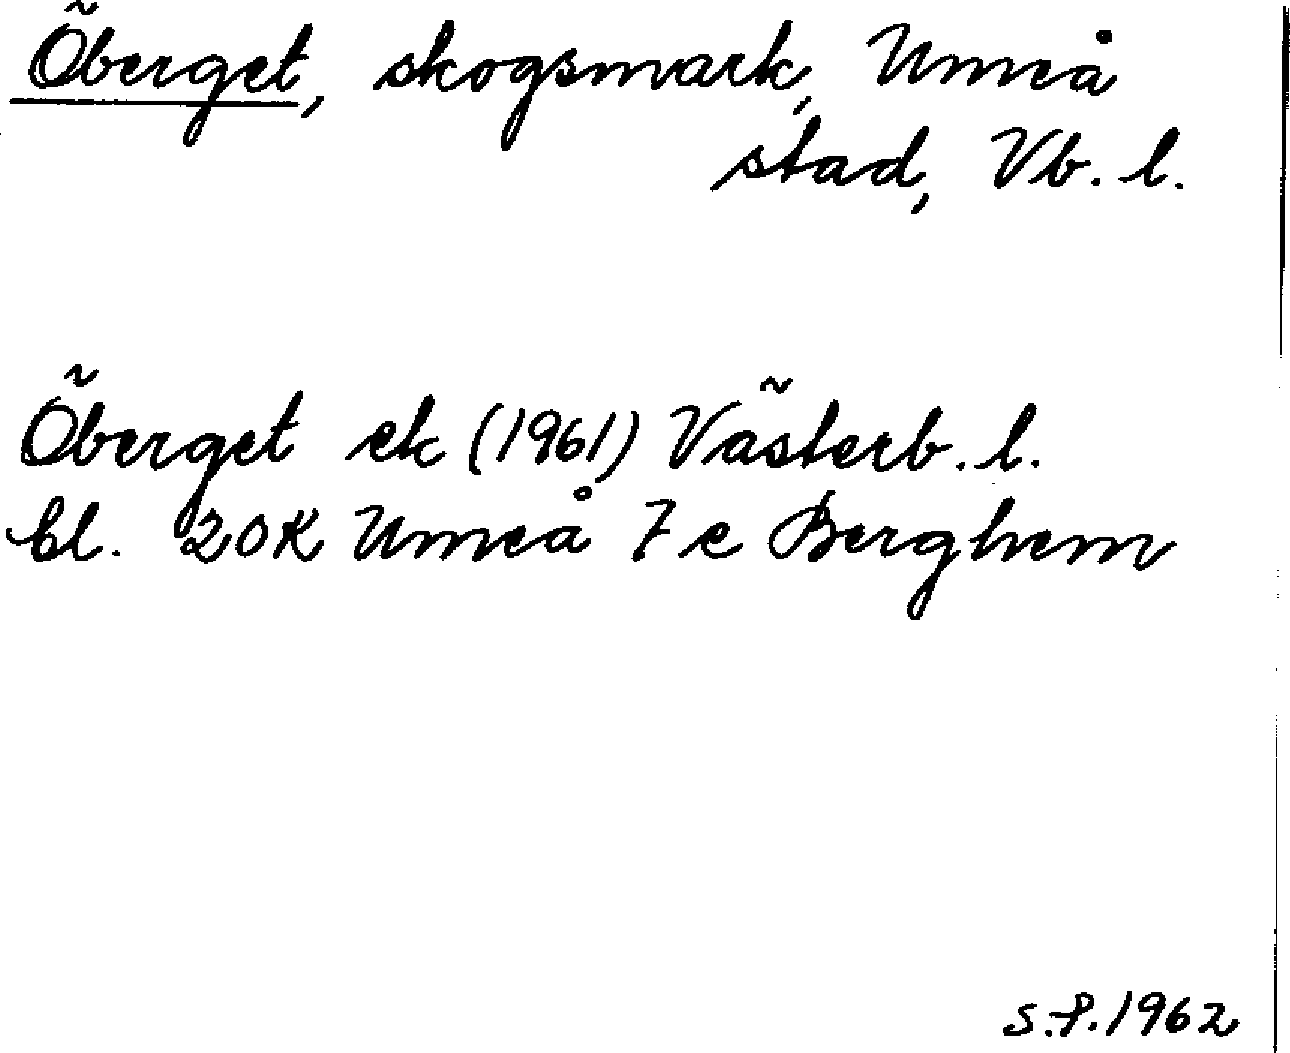 Öberget, skogsmark, Umeå
stad, Vb. l.
Öberget ek (1961) Västerb. l.
bl. 20K Umeå 7 e Berghem
S.P. 1962